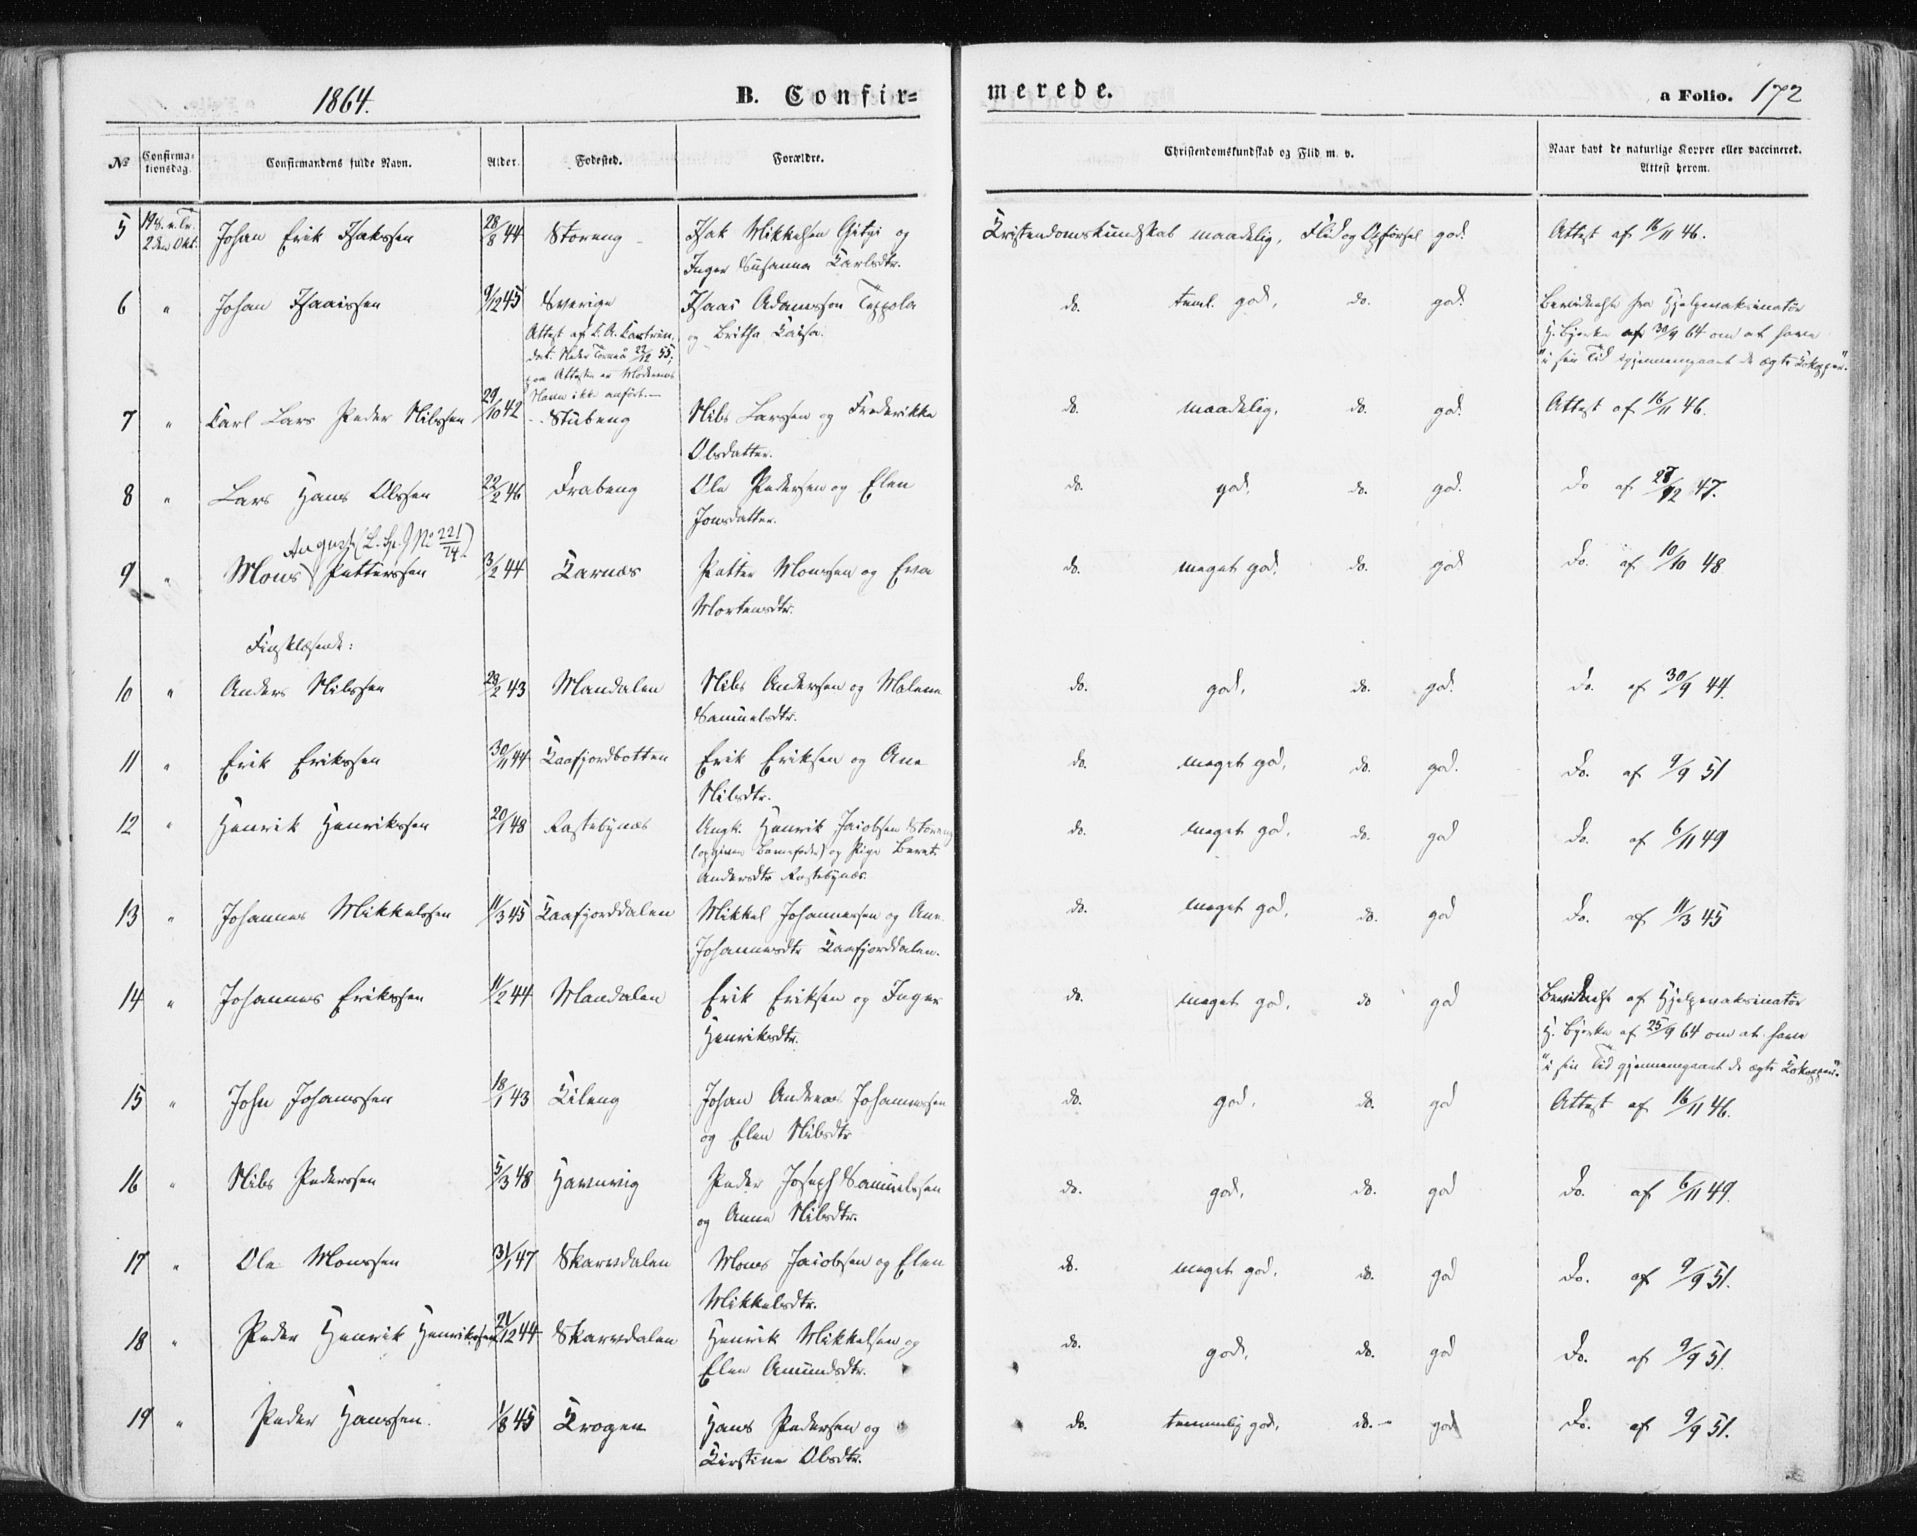 1864.
B. Confir-
merede.
a Folio. 172
№ Confirmationsdag. Confirmandens fulde Navn. Alder. Fødested. Forældre. Christendomskundskab og Flid m. v. Naar havt de naturlige Kopper eller vaccineret. Attest herom.
5 19 S. e. Tr. 2den Okt. Johan Erik Isakssen 28/8 44 Storeng Isak Mikkelsen Gitzi og Inger Susanna Carlsdtr. Kristendomskundskab maadelig, Flid og Opførsel god. Attest af 16/11 46.
6 " Johan Isaaissen 9/12 45 Sverige Isaai Adamssen Teppola og Britha Caisa.
Attest af L. A. Castrin, dat. Neder Torneå 22/12 55; paa Attesten er Moderens Navn ikke anført.
do. teml. god, do. god. Bevidnelse fra Hjelpevaksinatør H. Bjerke af 30/9 64 om at have "i sin Tid gjennemgaaet de ægte Kokopper".
7 " Karl Lars Peder Nilssen 29/10 42 Stubeng Nils Larssen og Frederikke Olsdatter. do. maadelig, do. god. Attest af 16/11 46.
8 " Lars Hans Olssen 22/2 46 Frabeng Ole Pedersen og Elen Jonsdatter. do. god, do. god. Do af 28/12 47.
August (L. Sp. J. No 221/74)
9 " Mons Pettersen 3/2 44 Karnæs Petter Monssen og Eva Mortensdtr. do. meget god, do. god. Do. af 10/10 48
Finsklæsende:
10 " Anders Nilssen 23/2 43 Mandalen Nils Andersen og Malene Samuelsdtr. do. god, do. god. Do. af 30/9 44.
11 " Erik Erikssen 30/11 44 Kaafjordbotten Erik Eriksen og Ane Nilsdtr. do. meget god, do. god. Do. af 9/9 51
12 " Henrik Henrikssen 20/1 48 Rastebynæs Ungk. Henrik Jacobsen Storeng (opgiven Barnefader) og Pige Beret Andersdtr Rastebynæs. do. meget god, do. god Do. af 6/11 49
13 " Johannes Mikkelssen 11/3 45 Kaafjorddalen Mikkel Johannessen og Ane Johannesdtr Kaafjorddalen. do. meget god, do. god Do. af 11/3 45
14 " Johannes Erikssen 11/2 44 Mandalen Erik Eriksen og Inger Henriksdtr. do. meget god, do god Bevidnelse af Hjelpevaksinatør H. Bjerke af 25/9 64 om at have "i sin Tid gjennemgaaet de ægte Kokopper".
15 " John Johanssen 18/1 43 Kileng Johan Andreas Johannessen og Elen Nilsdtr do. god, do. god Attest af 16/11 46.
16 " Nils Pederssen 5/3 48 Havnvig Peder Joseph Samuelssen og Anne Nilsdtr. do. god, do. god Do. af 6/11 49.
17 " Ole Monssen 31/1 47 Skarvdalen Mons Jacobsen og Elen Mikkelsdtr. do. meget god, do. god Do. af 9/9 51.
18 " Peder Henrik Henrikssen 21/12 44 Skarvdalen Henrik Mikkelsen og Elen Amundsdtr. do. god, do. god Do. af 9/9 51.
19 " Peder Hanssen. 1/8 45 Krogen Hans Pedersen og Kirstine Olsdtr. do. temmelig god, do. god Do. af 9/9 51.